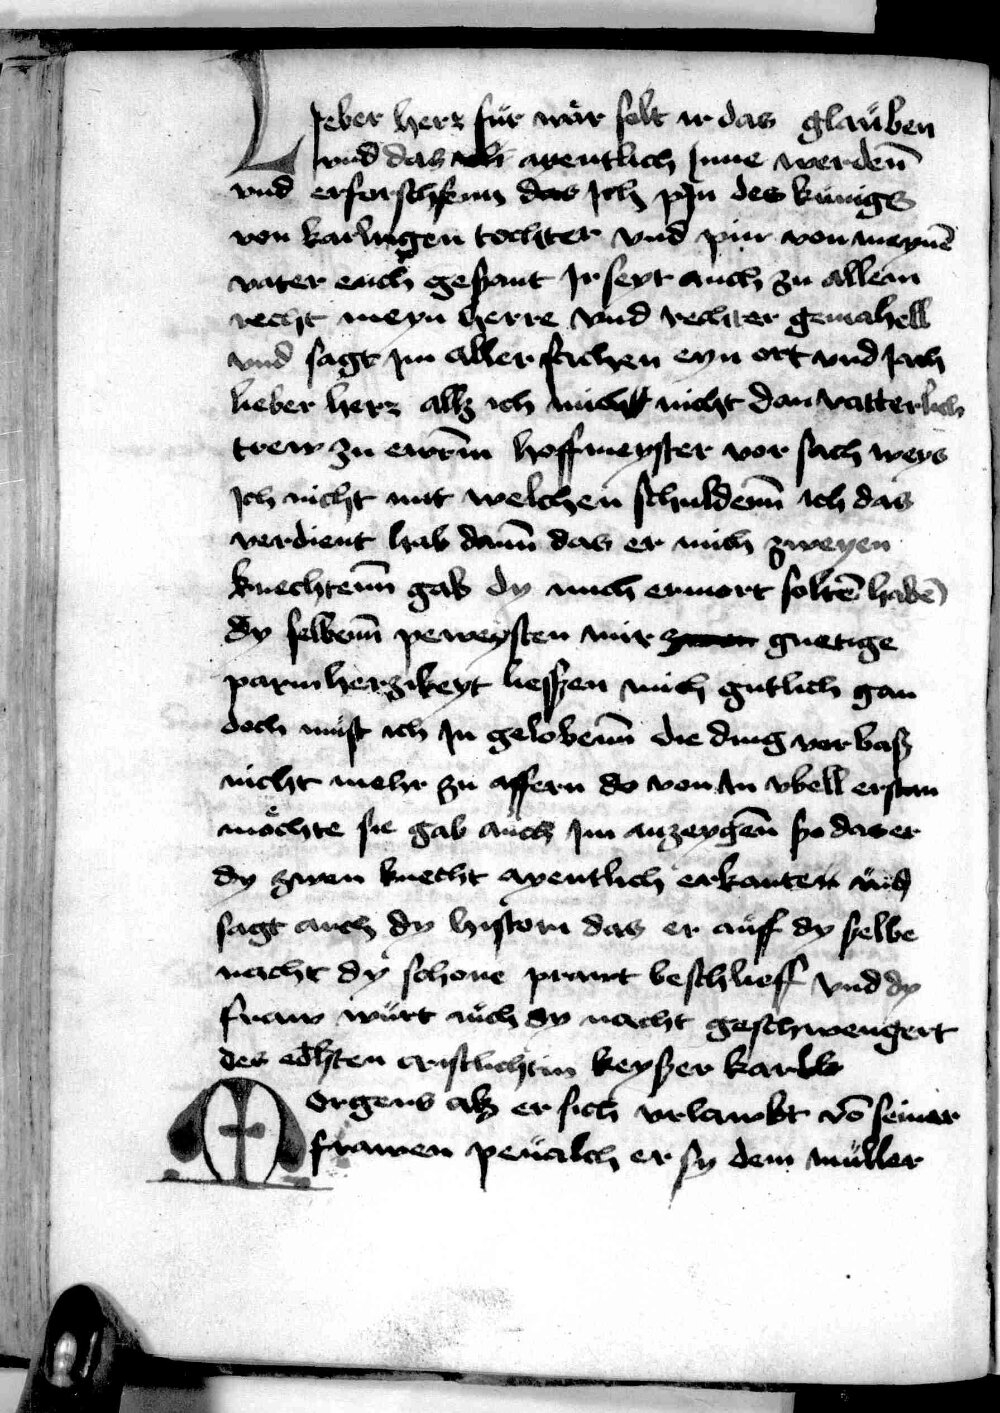 Lieber herr für wär solt ir das glaüben
vnd das ayentlich Inne werdenn̄
vnd erforschenn das Jch pin des kunigs
von karlingen tochter vnd pin von meynē
vater euch gesant Jr seyt auch zu allem
recht meyn herre vnd rechter gemahell
vnd sagt im aller sachen eyn ort vnd Jach
lieber herr allß ich mich nicht dan vatterlich
trew zu ewrm̄ hoffmeyster vor sach weys
Jch nicht mit welchen schuldenn̄ ich das
verdient hab dann̄ das er mich zweyen
knechtenn̄ gab dy mich ermort soltē habē
dy selbenn̄ peweysten mir guetige
parmherzikeyt liessen mich gutlich gan
doch must ich Jn gelobenn̄ die ding vor baß
nicht mehr zu affern do von In vbell erstan
möchte sie gab auch Jm anzeygen̄ so das er
dy zwen knecht ayentlich erkanten vnd
sagt auch dy histori das er aüff dy selbe
nacht dy schone prawt beschlieff vnd dy
fraw würt aüch dy nacht geschwengert
des edlsten cristlichsten keyßer karls
Morgens alß er sich vrlawbt vō seiner
frawen peualch er sy dem müller